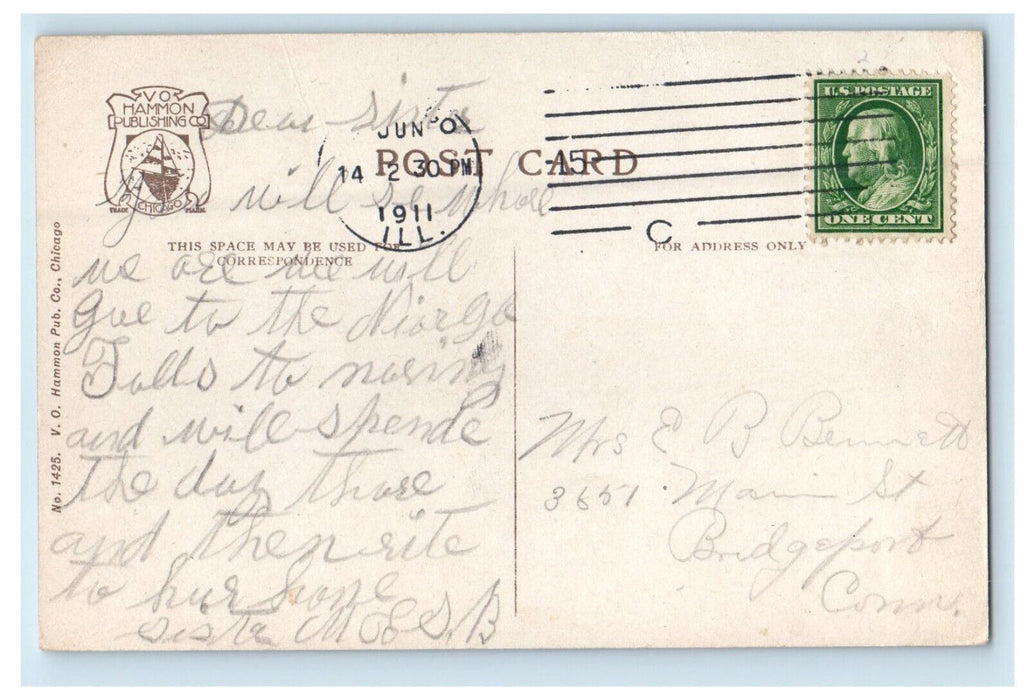 V O
HAMMON
PUBLISHING CO
CHICAGO
TRADE MARK
JUN
14 2 30 PM
1911
ILL.
15
C
U.S. POSTAGE
ONE CENT
POST CARD
THIS SPACE MAY BE USED FOR
CORRESPONDENCE
FOR ADDRESS ONLY
No. 1425. V. O. Hammon Pub. Co., Chicago
Dear Sista
will se whare
we are we will
goe to the Niorga
Falls to morning
and will spende
the day thare
and then rite
to hur hone
Sista M E S. B
Mrs E B Bennett
3651 Main St
Bridgeport
Conn.